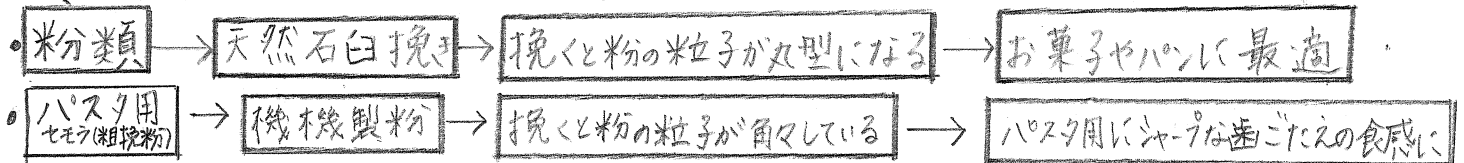 ・粉類→天然石臼挽き→挽くと粉の粒子が丸型になる→お菓子やパンに最適
・パスタ用 セモラ(粗挽粉)→機械製粉→挽くと粉の粒子が角々している→パスタ用にシャープな歯ごたえの食感に